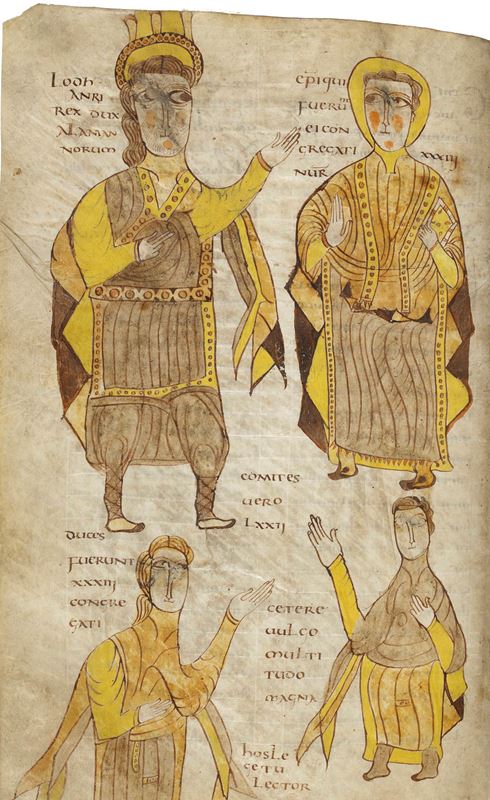 LODH
ANRI
REX DUX
ALAMAN
NORUM
EPI QUI
FUERUM
EI CON
GREGATI
NUR̄ XXXIII
COMITES
UERO
LXXII
DUCES
FUERUNT
XXXIII
CONGRE
GATI
CETERE
UULGO
MULTI
TUDO
MAGNA
hosLe
GETU
LECTOR